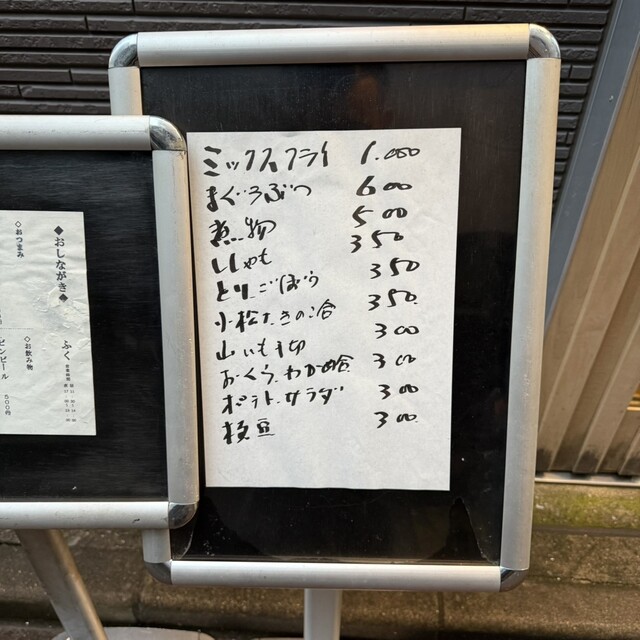 ミックスフライ 1.000
まぐろぶつ 600
煮物 500
ししゃも 350
とりごぼう 350
小松たきの冶 350.
山いも千切 300
おくら.わかめ冶 300
ポテトサラダ 300
枝豆 300.
◆おしながき◆
ふく
◇おつまみ
◇お飲み物
ビンビール
500円